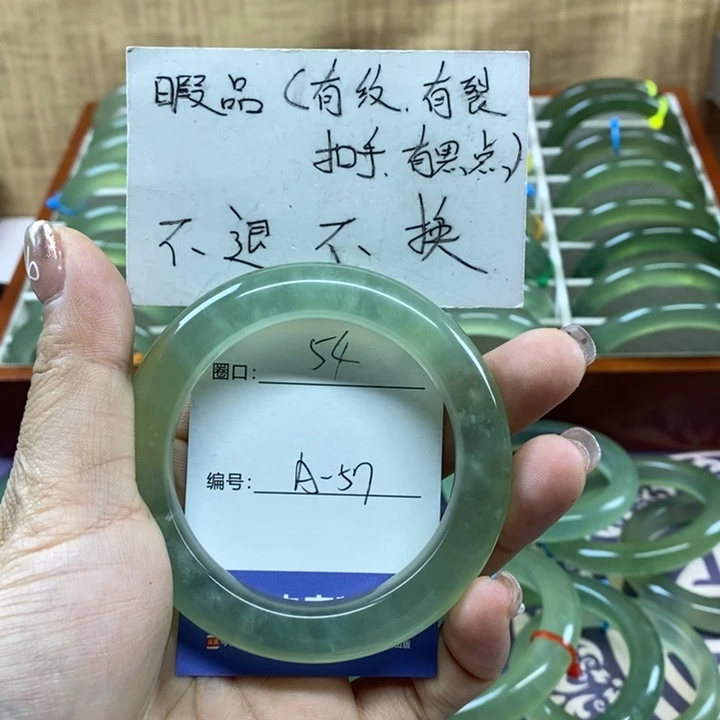 暇品（有纹.有裂
扣手.有黑点）
不退不换
圈口: 54
编号: A-57